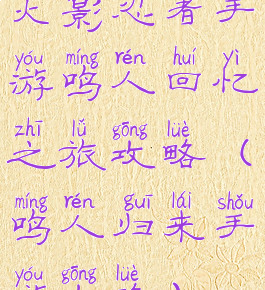 火影忍者手
yóu míng rén huí yì
游鸣人回忆
zhī lǚ gōng lüè
之旅攻略（
míng rén guī lái shǒu
鸣人归来手
yóu gōng lüè